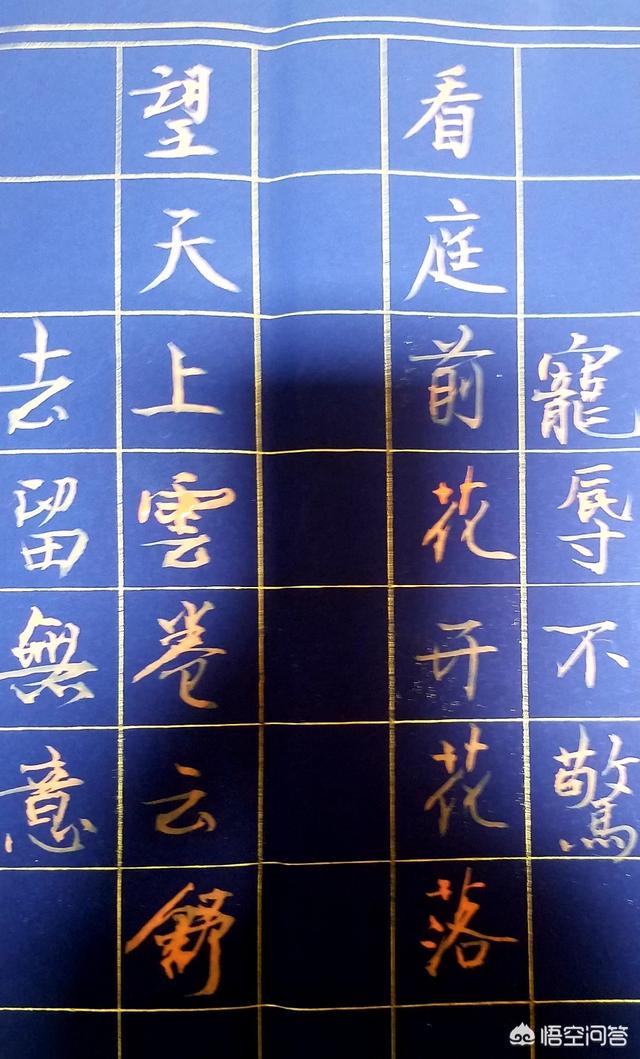 寵辱不驚
看庭前花开花落
去留無意
望天上雲卷云舒
悟空问答